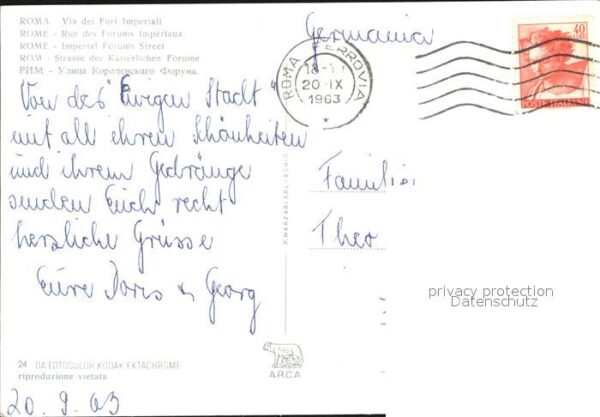 ROMA - Via dei Fori Imperiali
ROME - Rue des Forums Impériaux
ROME - Imperial Forums Street
ROM - Strasse des Kaiserlichen Forums
РИМ - Улица Королевскаго Форума.
Germania
ROMA FERROVIA
20-IX
1963
40
POSTE ITALIANE
Von der "Ewigen Stadt"
mit all ihren Schönheiten
und ihrem Gedränge
senden Euch recht
herzliche Grüsse
Eure Doris & Georg
Familie
Theo
privacy protection
Datenschutz
24 DA FOTOCOLOR KODAK EKTACHROME
riproduzione vietata
ARCA
20.9.63